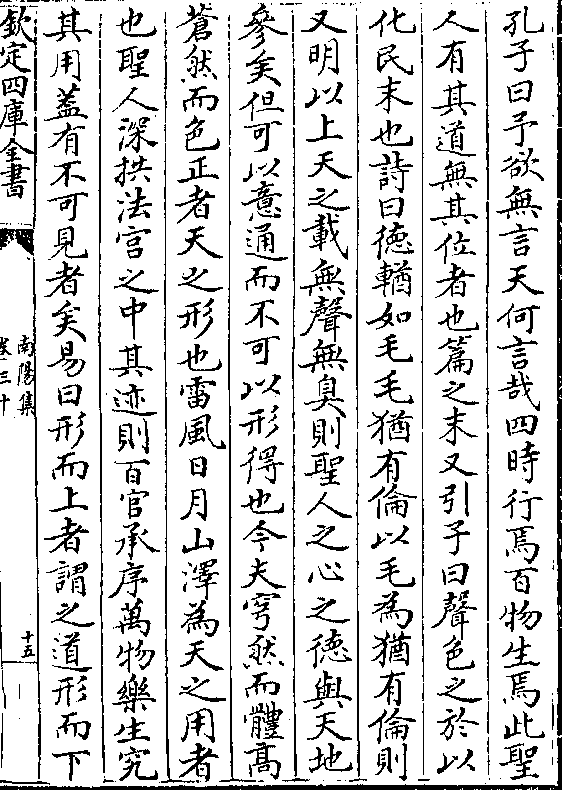 孔子曰予欲無言天何言哉四時行焉百物生焉此聖
人有其道無其位者也篇之末又引子曰聲色之於以
化民末也詩曰徳輶如毛毛猶有倫以毛為猶有倫則
又明以上天之載無聲無臭則聖人之心之德與天地
參矣但可以意通而不可以形得也今夫穹然而體高
蒼然而色正者天之形也雷風日月山澤為天之用者
也聖人深拱法宫之中其迹則百官承序萬物樂生究
其用葢有不可見者矣易曰形而上者謂之道形而下
欽定四庫全書
南陽集
卷三十
十五